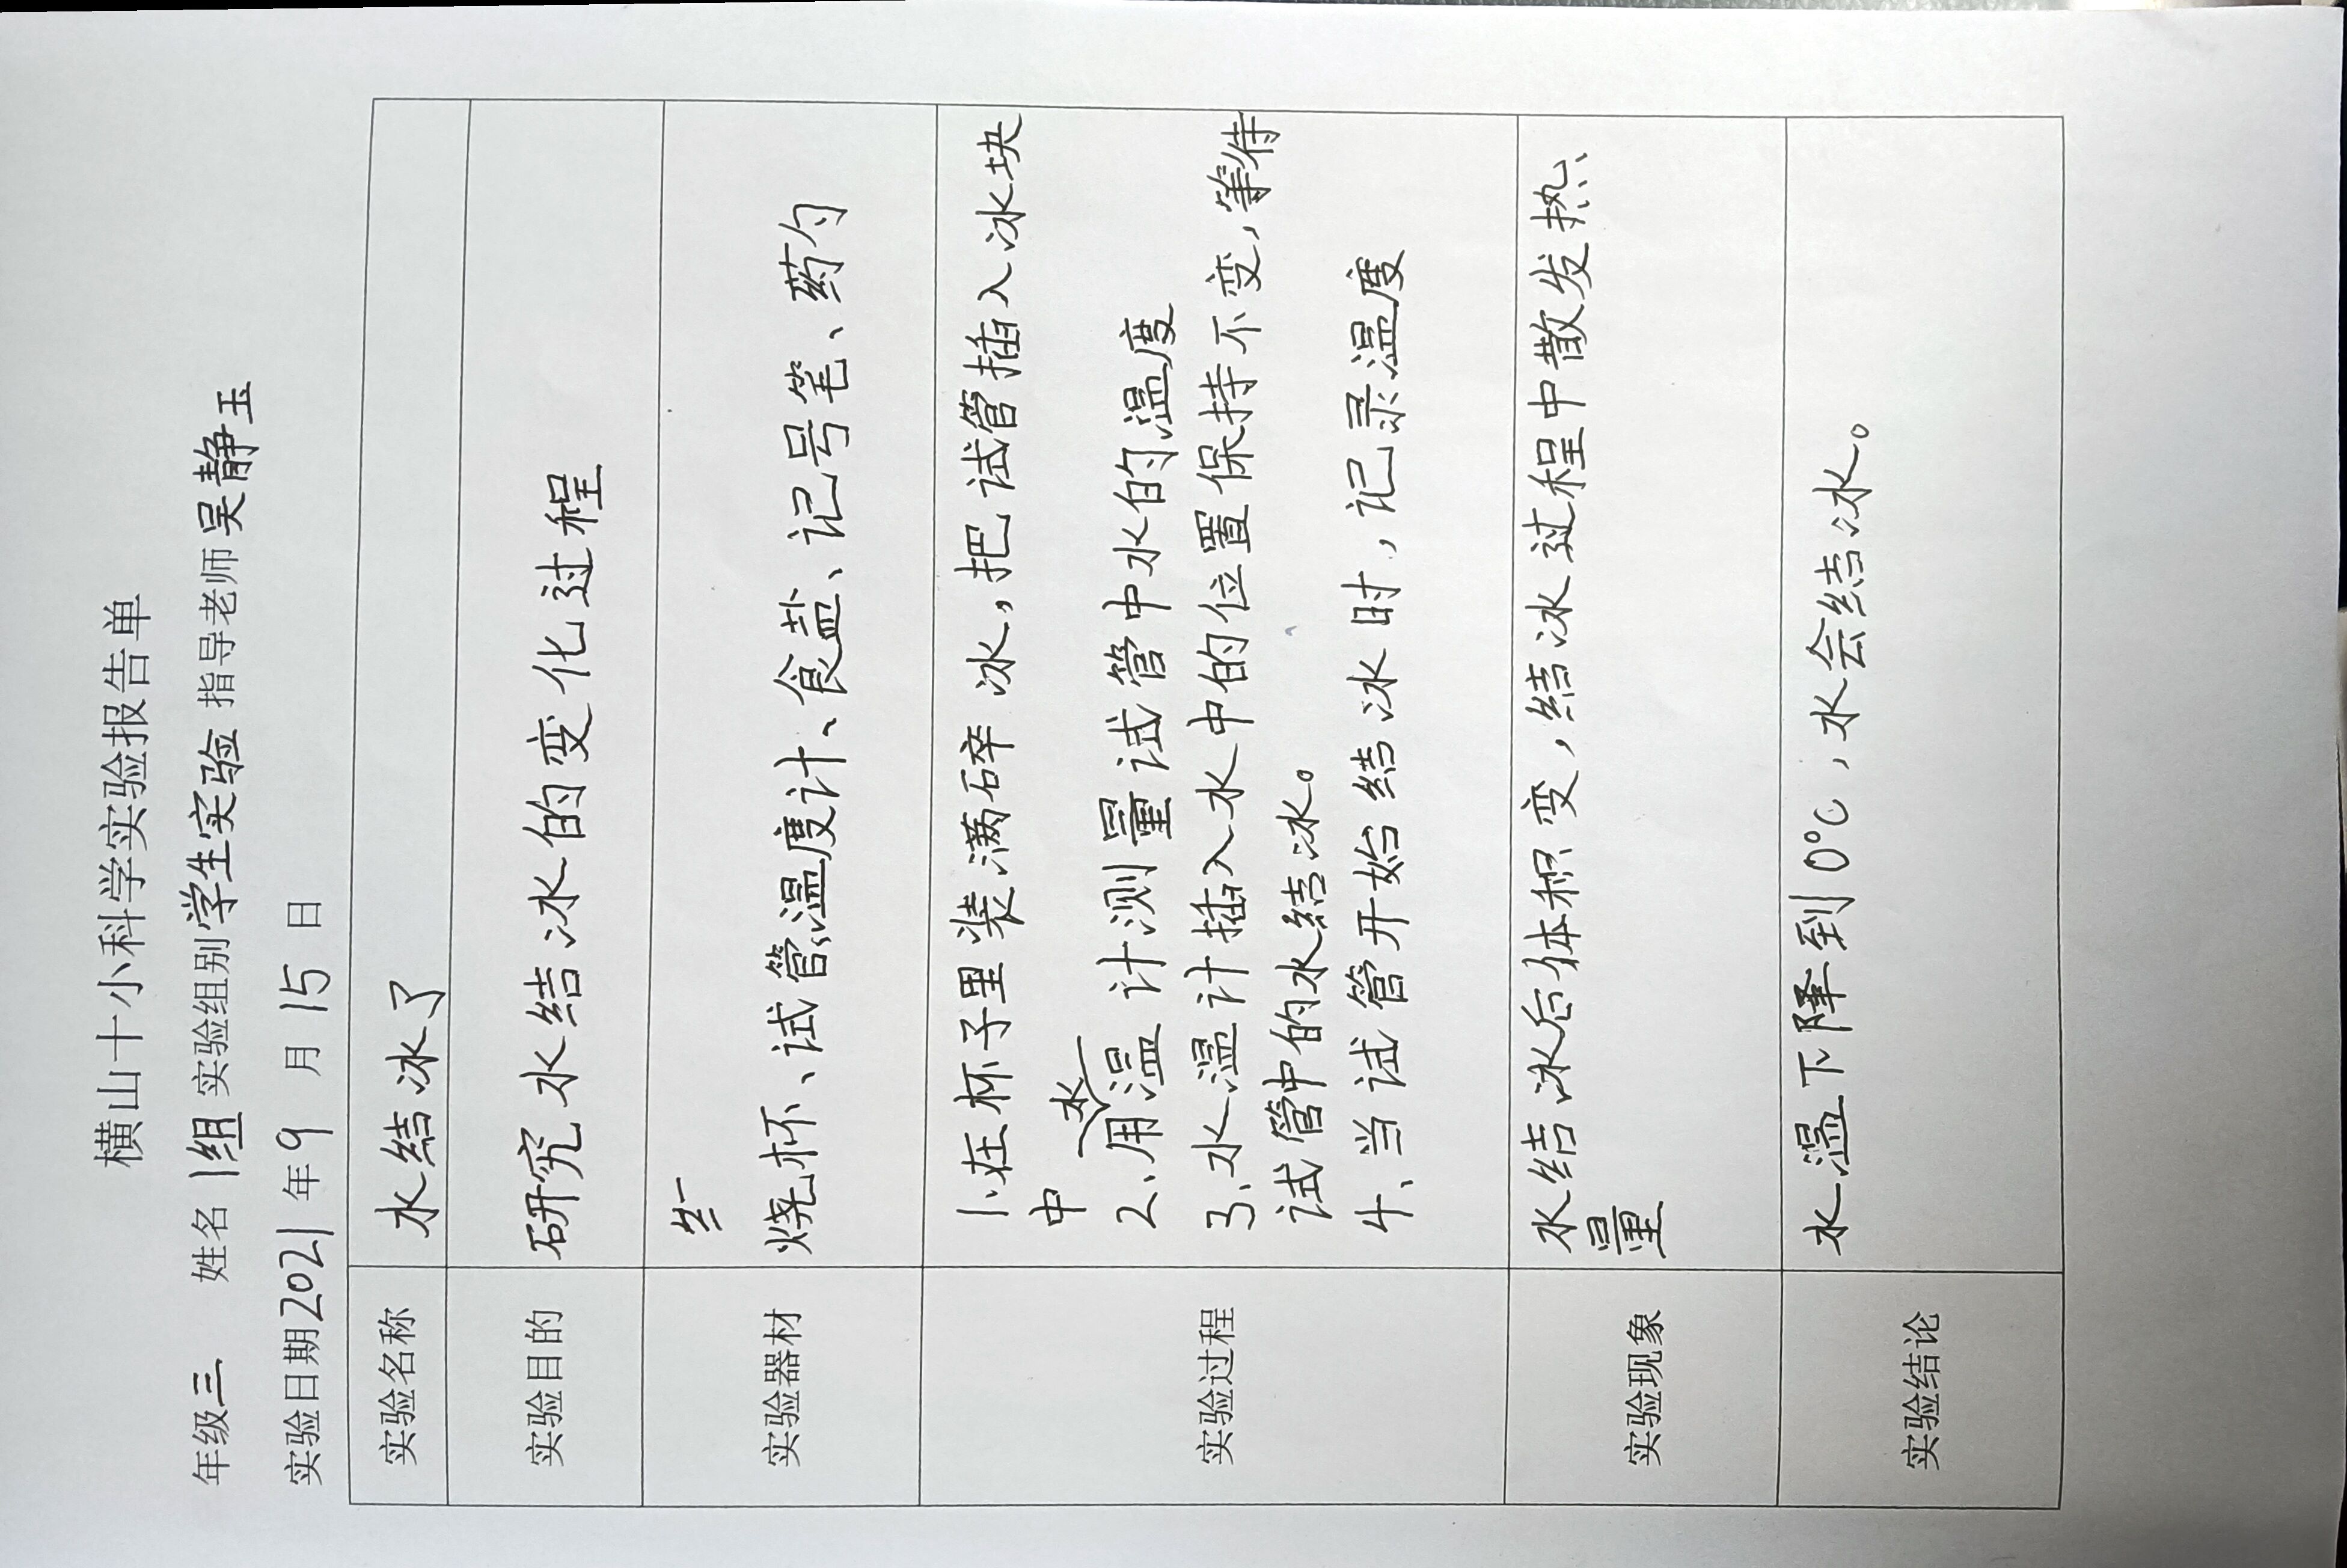 横山十小科学实验报告单
年级三 姓名 1组 实验组别学生实验 指导老师吴静玉
实验日期2021年9月15日
实验名称 水结冰了
实验目的 研究水结冰的变化过程
实验器材
烧杯、试管温度计、食盐、记号笔、药勺
实验过程
1.在杯子里装满碎冰,把试管插入冰块
中
水
2、用温计测量试管中水的温度
3、水温计插入水中的位置保持不变,等待
试管中的水结冰。
4、当试管开始结冰时,记录温度
实验现象
水结冰后体积变,结冰过程中散发热
量
实验结论 水温下降到0℃,水会结冰。